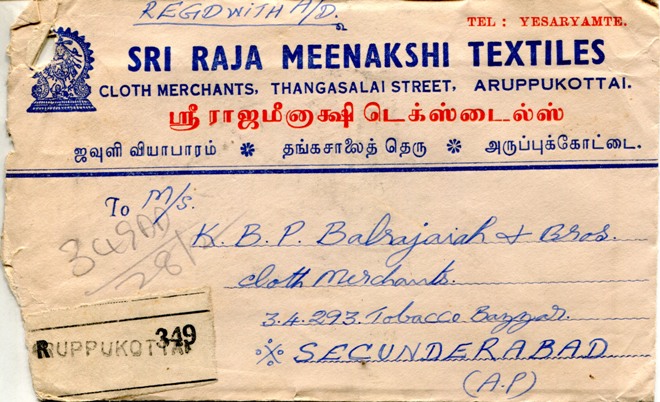 REGD WITH A/D.
TEL : YESARYAMTE.
SRI RAJA MEENAKSHI TEXTILES
CLOTH MERCHANTS, THANGASALAI STREET, ARUPPUKOTTAI.
ஸ்ரீ ராஜமீனாக்ஷி டெக்ஸ்டைல்ஸ்
ஜவுளி வியாபாரம் ❋ தங்கசாலைத் தெரு ❋ அருப்புக்கோட்டை.
To M/s.
349
28/
K. B. P. Balrajaiah & Bros.
Cloth Merchants.
3.4.293. Tobacco Bazzar.
SECUNDERABAD
(A.P)
R 349
RUPPUKOTTAI